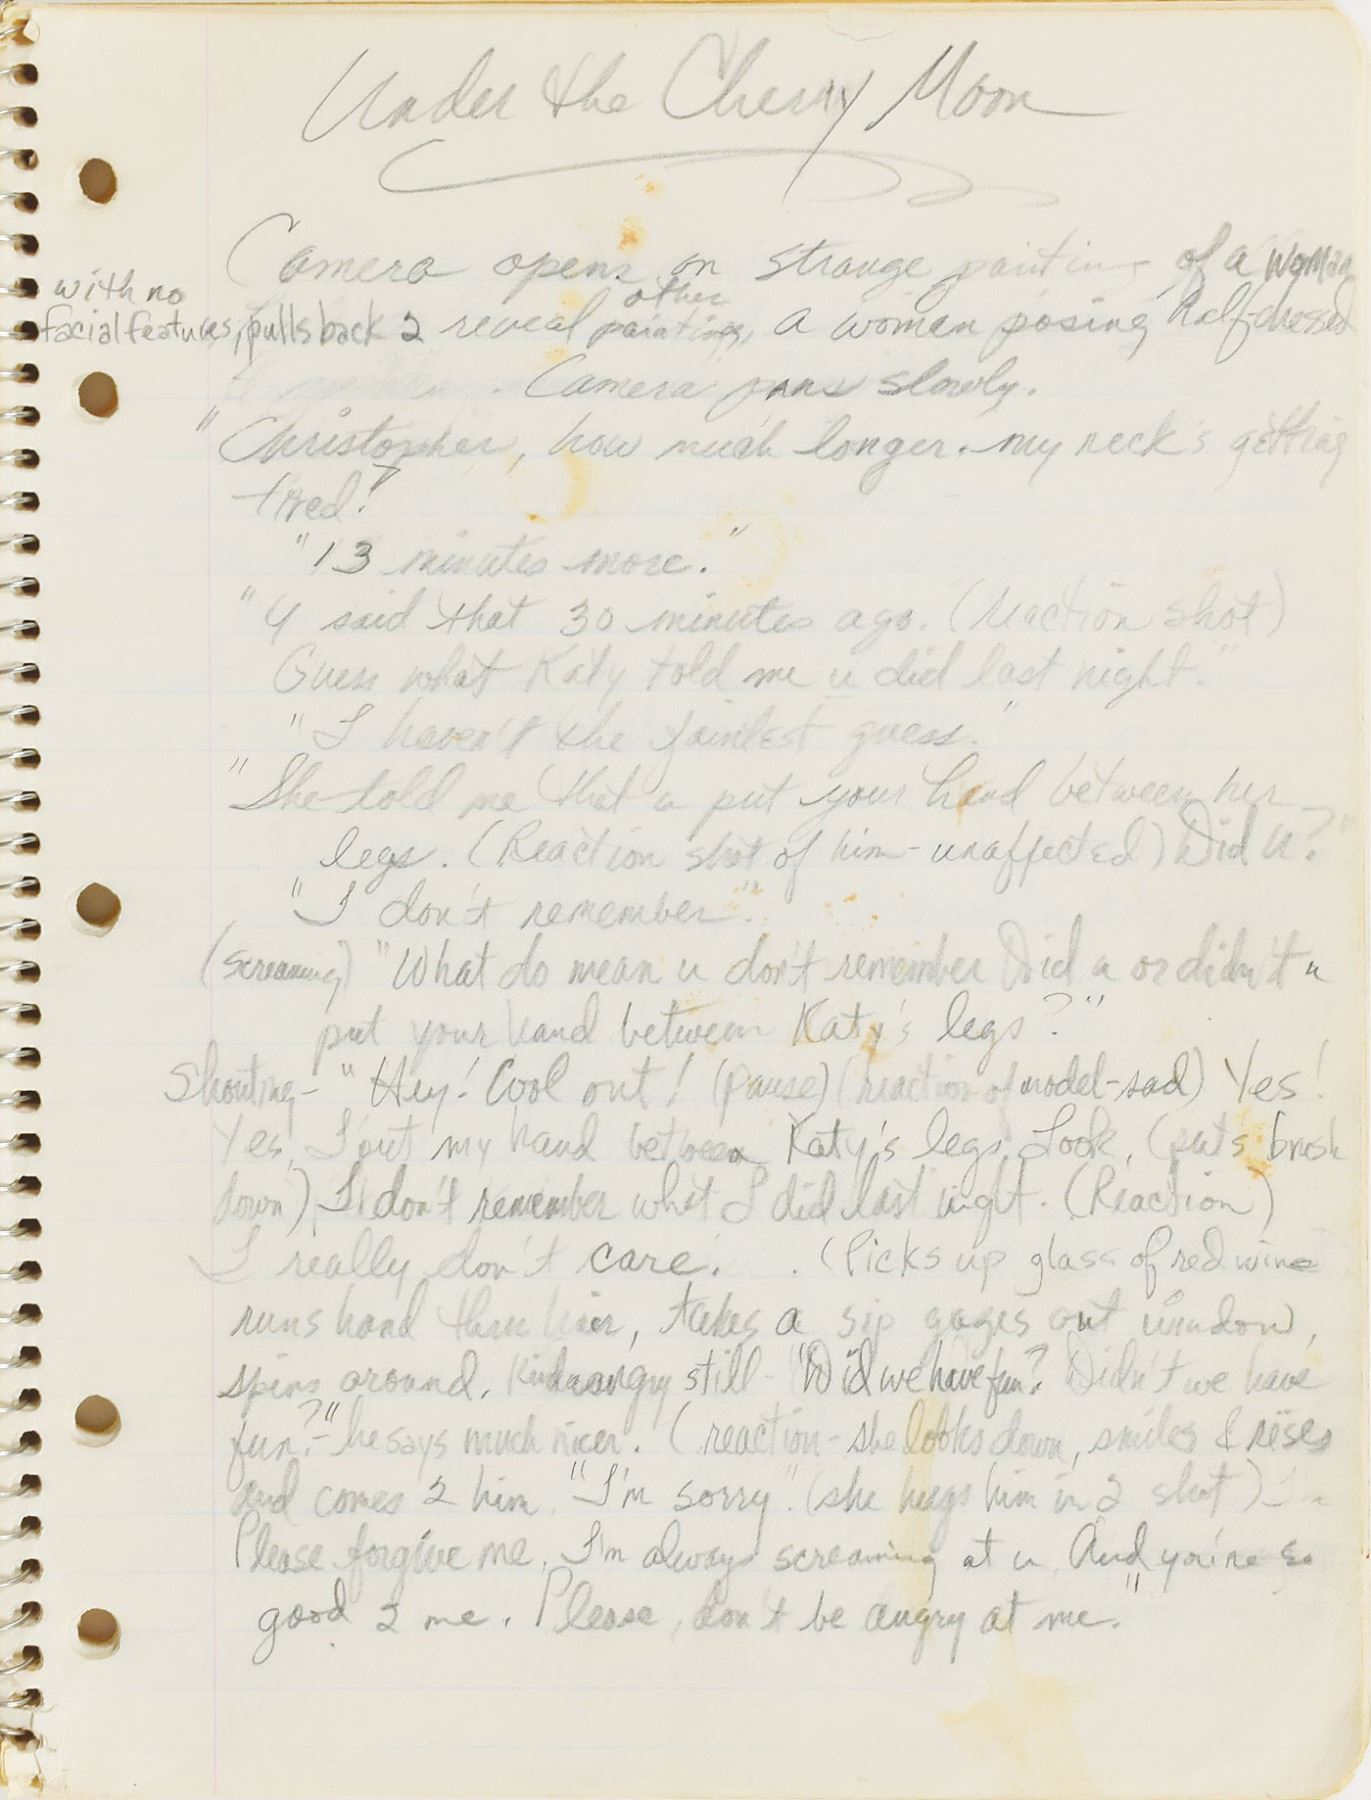 Under the Cherry Moon
Camera opens on strange painting of a woman
with no
facial features, pulls back 2 reveal other paintings, a woman posing half-dressed
. Camera pans slowly.
"Christopher, how much longer. my neck's getting
tired!"
"13 minutes more."
"U said that 30 minutes ago. (reaction shot)
Guess what Katy told me u did last night."
"I haven't the faintest guess."
"She told me that u put your hand between her
legs. (Reaction shot of him - unaffected) Did u?"
"I don't remember".
(screaming) "What do mean u don't remember Did u or didn't u
put your hand between Katy's legs?"
Shouting - "Hey! Cool out! (pause) (reaction of model-sad) Yes!
Yes, I put my hand between Katy's legs. Look, (puts brush
down) I don't remember what I did last night. (Reaction)
I really don't care. . (Picks up glass of red wine
runs hand thru hair, takes a sip gazes out window,
spins around. Kinda angry still - "Did we have fun? Didn't we have
fun?" - he says much nicer. (reaction - she looks down, smiles & rises
and comes 2 him. "I'm sorry". (she hugs him in 2 shot)
Please forgive me. I'm always screaming at u. And you're so
good 2 me. Please, don't be angry at me."